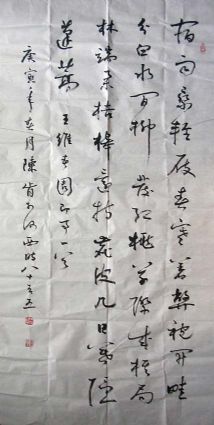 宿雨乘輕屐春寒著弊袍開畦
分白水間柳發紅桃草際成棋局
林端舉桔槔還持鹿皮几日暮隱
蓬蒿 王維春園即事一首
庚寅年春月陳肯於河西時八十又五